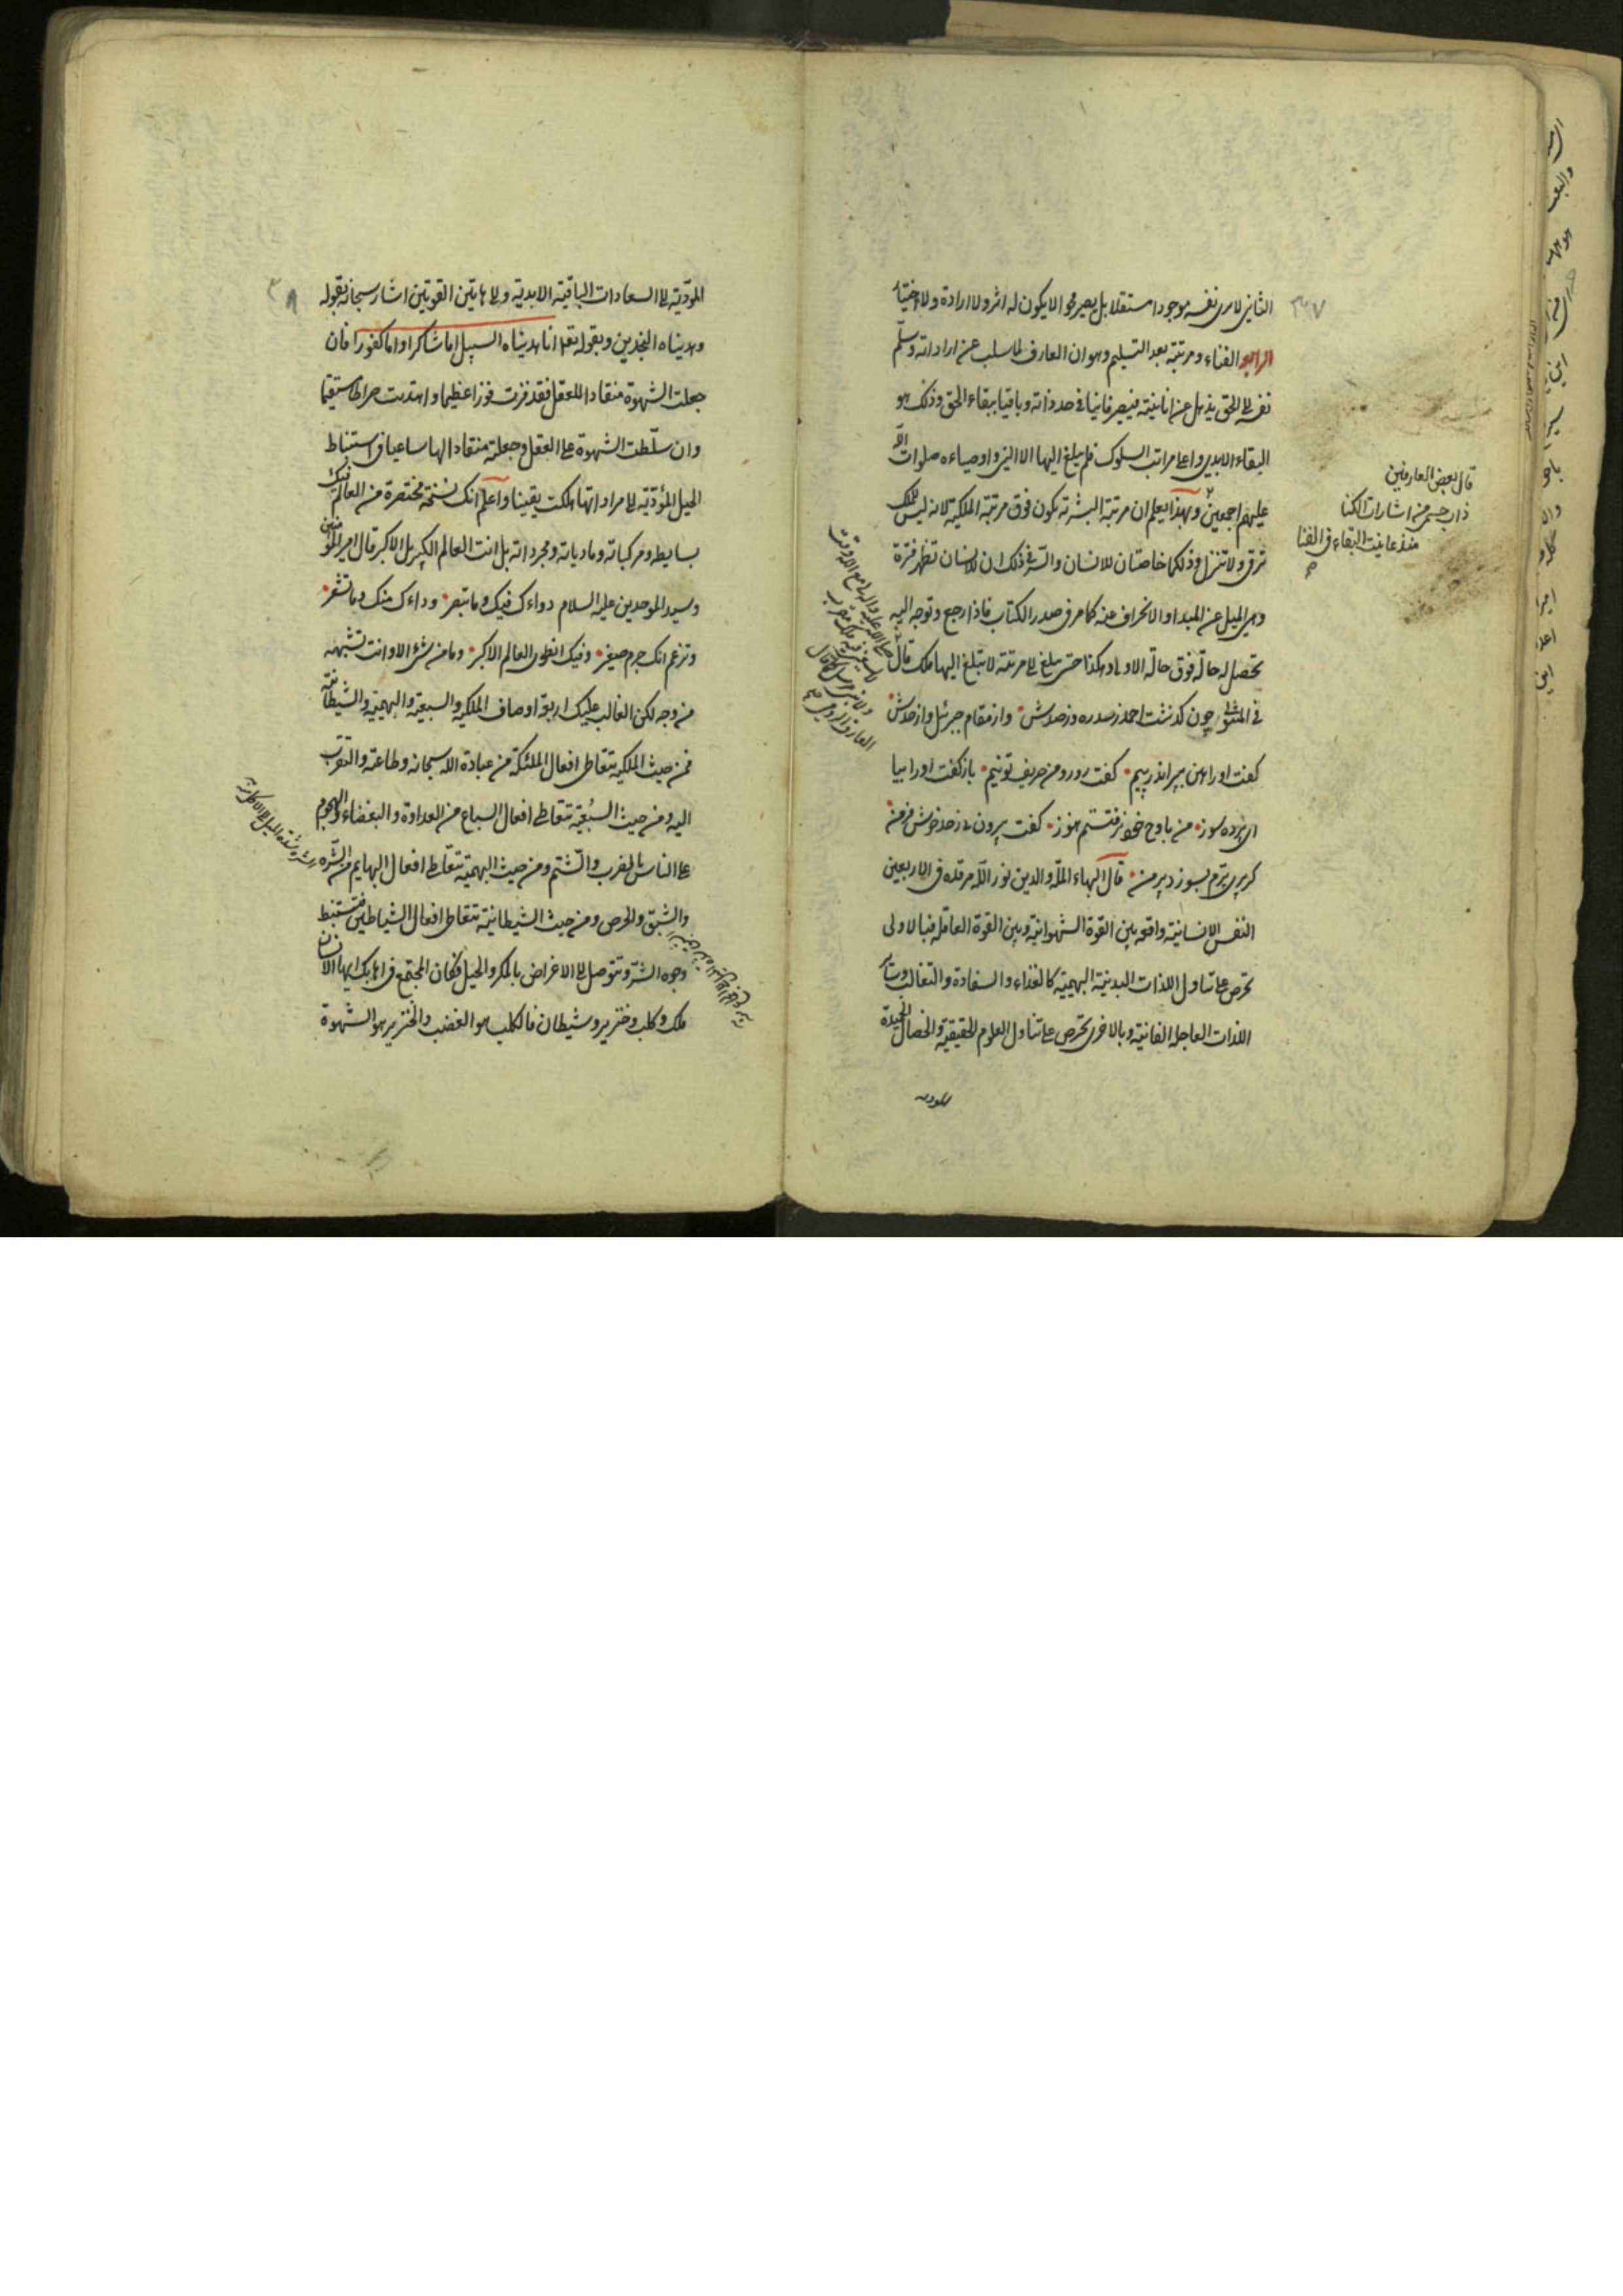 الثاني لا يرى نفسه موجودا مستقلا بل يصير محوا لا يكون له اثر ولا ارادة ولا اختيار
الرابع الفناء ومرتبته بعد التسليم وهو ان العارف لما سلب عنه اراداته وسلّم
نفسه الى الحق يذهل عن انانيته فيصير فانيا في حد ذاته وباقيا ببقاء الحق وذلك هو
البقاء الابدي واعلى مراتب السلوك فلم يبلغ اليها الا النبي واوصياءه صلوات الله
عليهم اجمعين وبهذا يعلم ان مرتبة البشرية تكون فوق مرتبة الملكية لانه ليس للملك
ترقي ولا تنزل وذلكما خاصتان للانسان والسر في ذلك ان للانسان تظهر فترة
وهي الميل عن المبداء والانحراف عنه كما مر في صدر الكتاب فاذا رجع وتوجه اليه
تحصل له حالة فوق حالة الاولى وهكذا حتى يبلغ الى مرتبة لا يبلغ اليها ملك قال
في المثنوي چون كذشت احمد ز سدره وز صدش وز مقام جبرئيل واز حدش
كفت اورا هين بپر اندر پيم كفت رو رو من حريف تو نيم باز كفت اورا بيا
اى پرده سوز من باوج خود نرفتستم هنوز كفت بيرون زين حد خوش فر من
كر پرى برّم بسوزد پر من قال البهاء الملة والدين نور الله مرقده في الاربعين
النفس الانسانية واقعة بين القوة الشهوانية وبين القوة العاقلة فبالاولى
تحرص على تناول اللذات البدنية البهيمية كالغذاء والسفادة والتغالب وسائر
اللذات العاجلة الفانية وبالاخرى تحرص على تناول العلوم الحقيقية والخصال الحميدة
المؤدية
قال بعض العارفين
ذاب جسمي من اشارات الكنا
منذ عاينت البقاء في الفنا
٣٧
المؤدّية الى السعادات الباقية الابدية والى هاتين القوتين اشار سبحانه بقوله
وهديناه النجدين وبقوله تعالى انا هديناه السبيل اما شاكرا واما كفورا فان
جعلت الشهوة منقادا للعقل فقد فزت فوزا عظيما واهتديت صراطا مستقيما
وان سلّطت الشهوة على العقل وجعلته منقادا لها ساعيا في استنباط
الحيل المؤدّية الى مراداتها هلكت يقينا واعلم انك نسخة مختصرة من العالم فيك
بسايطه ومركباته ومادياته ومجرداته بل انت العالم الكبير بل الاكبر قال امير المؤمنين
وسيد الموحدين عليه السلام دواءك فيك وما تبصر وداءك منك وما تشعر
وتزعم انك جرم صغير وفيك انطوى العالم الاكبر وما من شيء الا وانت تشبهه
من وجه لكن الغالب عليك اربعة اوصاف الملكية والسبعية والبهيمية والشيطانية
فمن حيث الملكية تتعاطى افعال الملئكة من عبادة الله سبحانه وطاعته والتقرب
اليه ومن حيث السبُعية تتعاطى افعال السباع من العداوة والبغضاء والهجوم
على الناس بالضرب والشتم ومن حيث البهيمية تتعاطى افعال البهايم من الشره
والشبق والحرص ومن حيث الشيطانية تتعاطى افعال الشياطين فتستنبط
وجوه الشر وتتوصل الى الاغراض بالمكر والحيل فكان المجتمع في اهابك ايها الانسان
ملك وكلب وخنزير وشيطان فالكلب هو الغضب والخنزير هو الشهوة